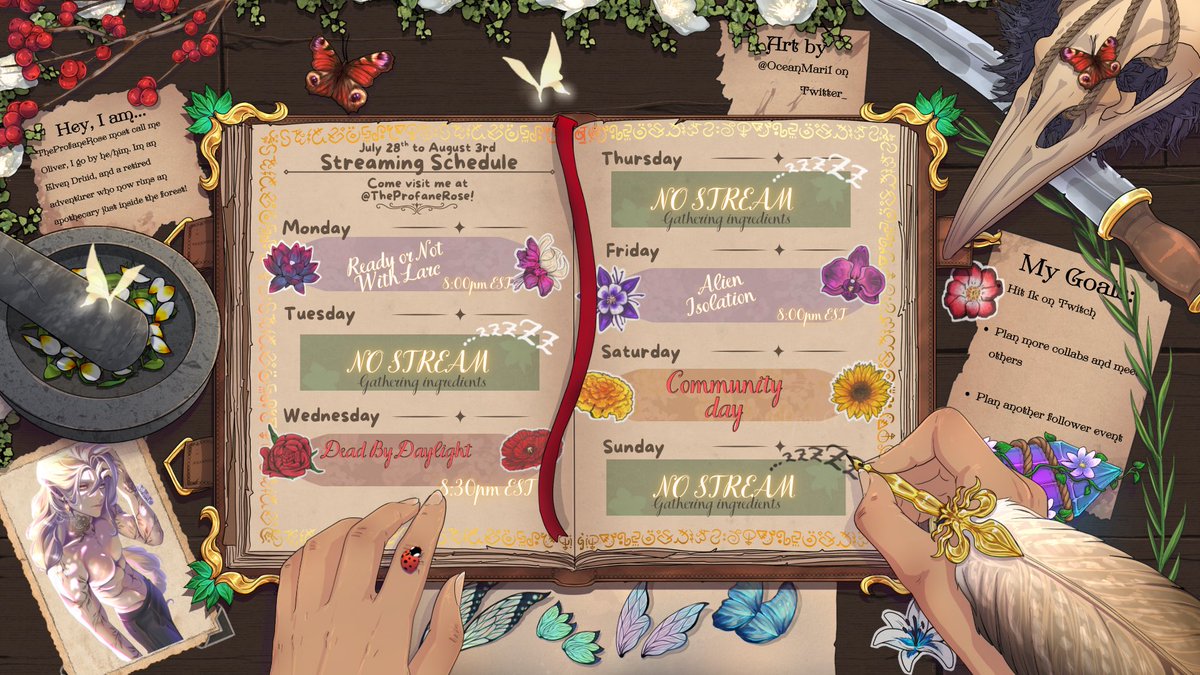 Hey, I am...
TheProfaneRose most call me
Oliver, I go by he/him. Im an
Elven Druid, and a retired
adventurer who now runs an
apothecary just inside the forest!
Art by
@OceanMari1 on
Twitter_
July 28th to August 3rd
Streaming Schedule
Come visit me at
@TheProfaneRose!
Monday
Ready or Not
With Larc
8:00pm EST
Tuesday
zzzzZZ
NO STREAM
Gathering ingredients
Wednesday
Dead By Daylight
8:30pm EST
Thursday
zzzzZZ
NO STREAM
Gathering ingredients
Friday
Alien
Isolation
8:00pm EST
Saturday
Community
day
Sunday
zzzzZZ
NO STREAM
Gathering ingredients
My Goals:
Hit 1k on Twitch
• Plan more collabs and mee
others
• Plan another follower event